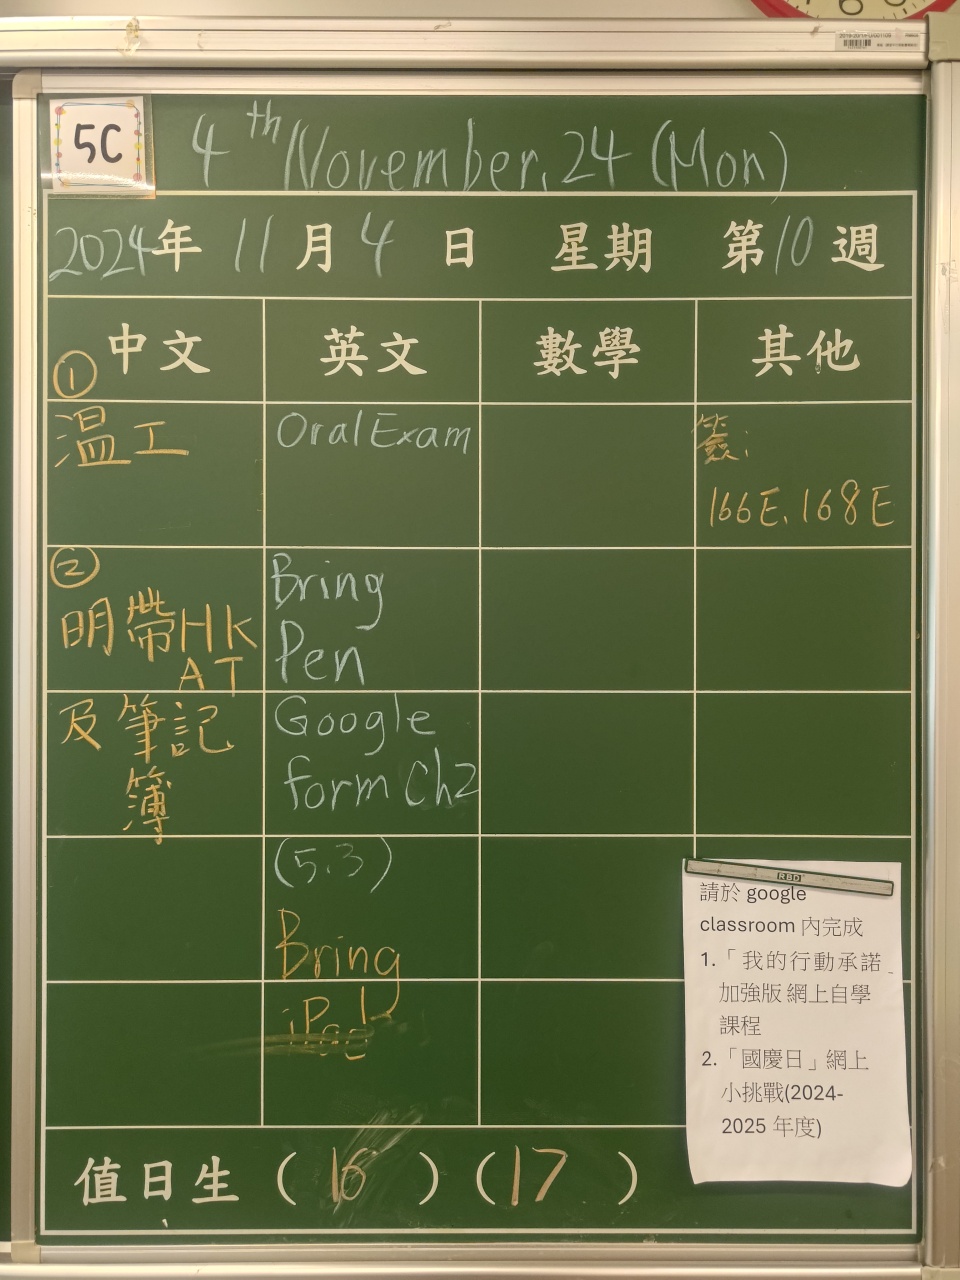 5C
4th November, 24 (Mon)
2024年 11月 4日 星期 第10週
中文 英文 數學 其他
①
溫工
Oral Exam
簽:
166E, 168E
②
明帶HK
AT
及筆記
簿
Bring
Pen
Google
form Ch2
(5.3)
Bring
iPad
RBD
請於 google
classroom 內完成
1.「我的行動承諾
加強版 網上自學
課程
2.「國慶日」網上
小挑戰(2024-
2025 年度)
值日生 ( 16 ) ( 17 )